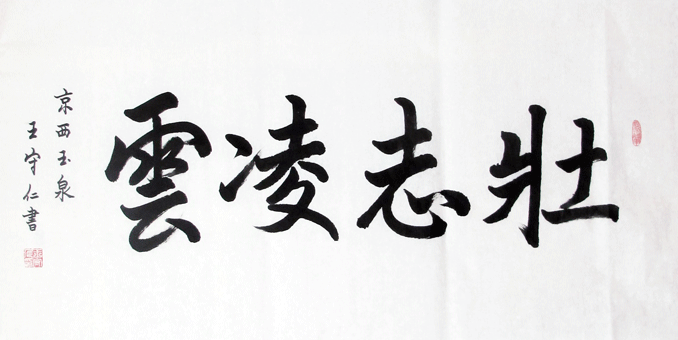 壯志凌雲
京西玉泉
王守仁書